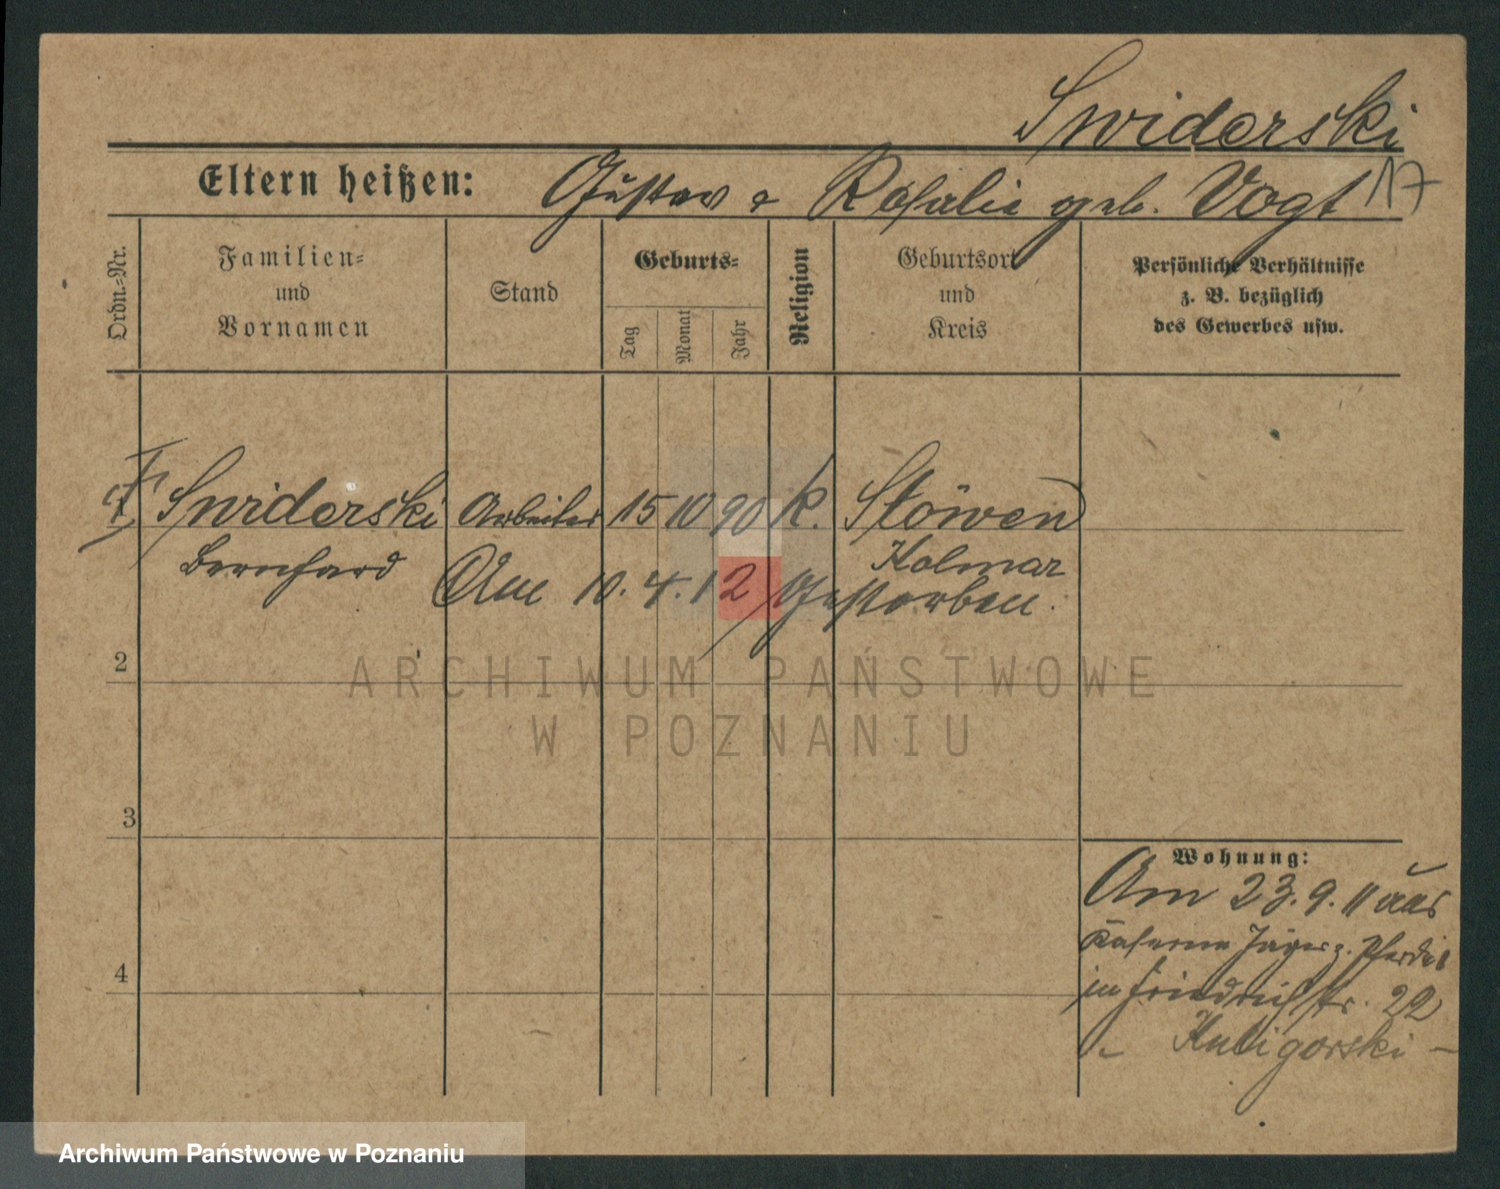 Swiderski
Eltern heißen: Gustav & Rosalie geb. Vogt 17
Ordn.-Nr.
Familien-
und
Vornamen
Stand
Geburts-
Tag
Monat
Jahr
Religion
Geburtsort
und
Kreis
Persönliche Verhältnisse
z. B. bezüglich
des Gewerbes usw.
Swiderski Arbeiter 15 10 90 k. Stöwen
Bernhard Kolmar
Am 10. 4. 12 gestorben.
2
ARCHIWUM PAŃSTWOWE
W POZNANIU
3
Wohnung:
Am 23. 9. 11 aus
Kaserne Jäger z. Pferde 1
4
in Friedrichstr. 22
Kuligorski –
Archiwum Państwowe w Poznaniu